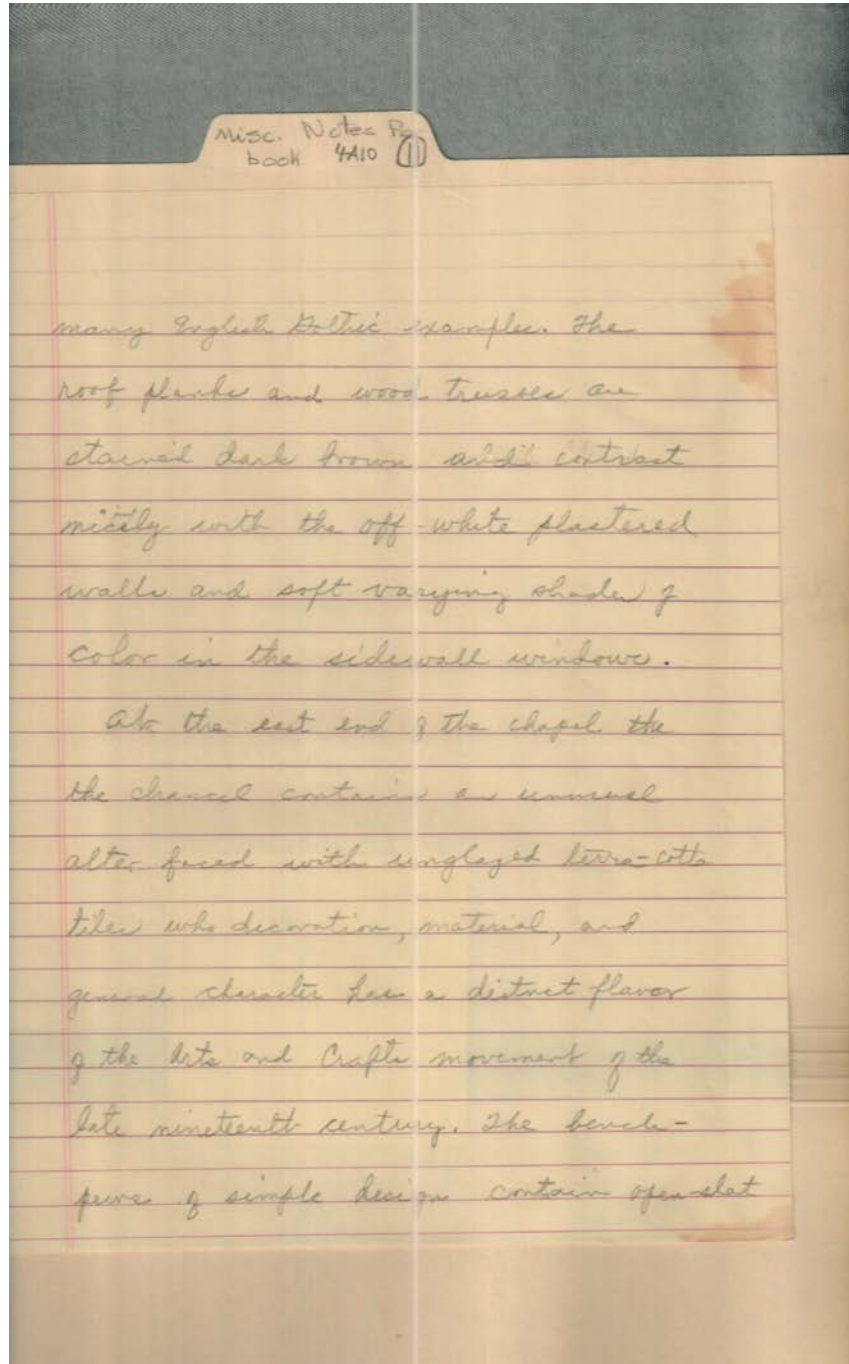 Misc. Notes Pa
book 4A10 (1)
many English Gothic examples. The
roof planks and wood trusses are
stained dark brown and contrast
nicely with the off-white plastered
walls and soft varying shades of
color in the sidewall windows.
At the east end of the chapel the
the chancel contains an unusual
alter faced with unglazed terra-cotta
tiles who decoration, material, and
general character has a distinct flavor
of the Arts and Crafts movement of the
late nineteenth century. The bench-
pews of simple design contain open-slat